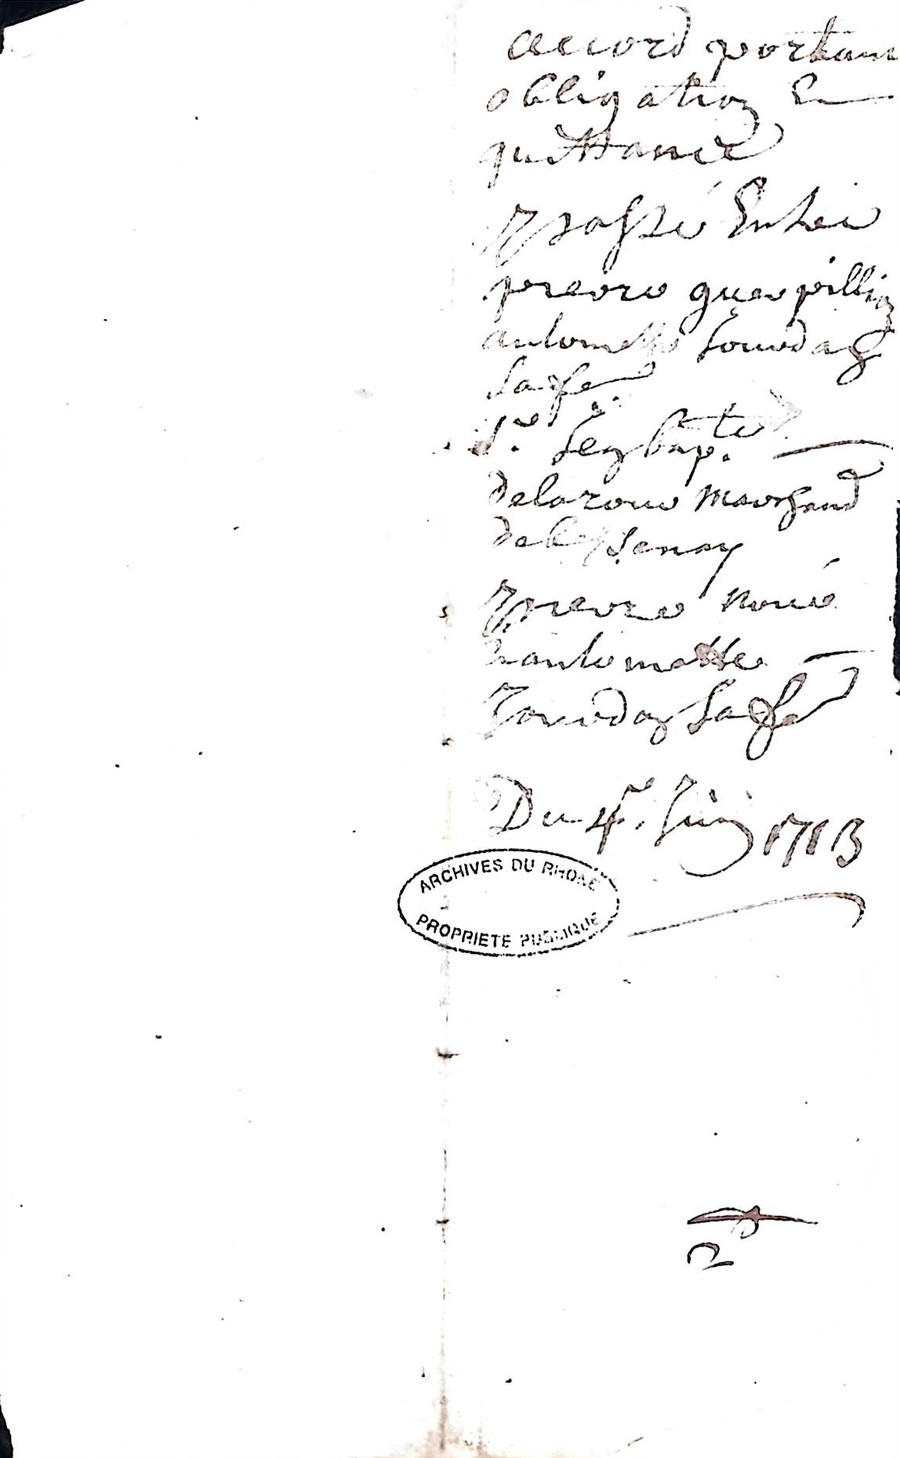 accord portan
obligation Et
quittance
passé Entre
pierre guerpillion
antoinette
sa fe.
Sr. Jean bapte.
delaroue marchand
de
pierre noué
antoinette
sa fe
Du 4e. Juin 1713
ARCHIVES DU RHONE
PROPRIETE PUBLIQUE